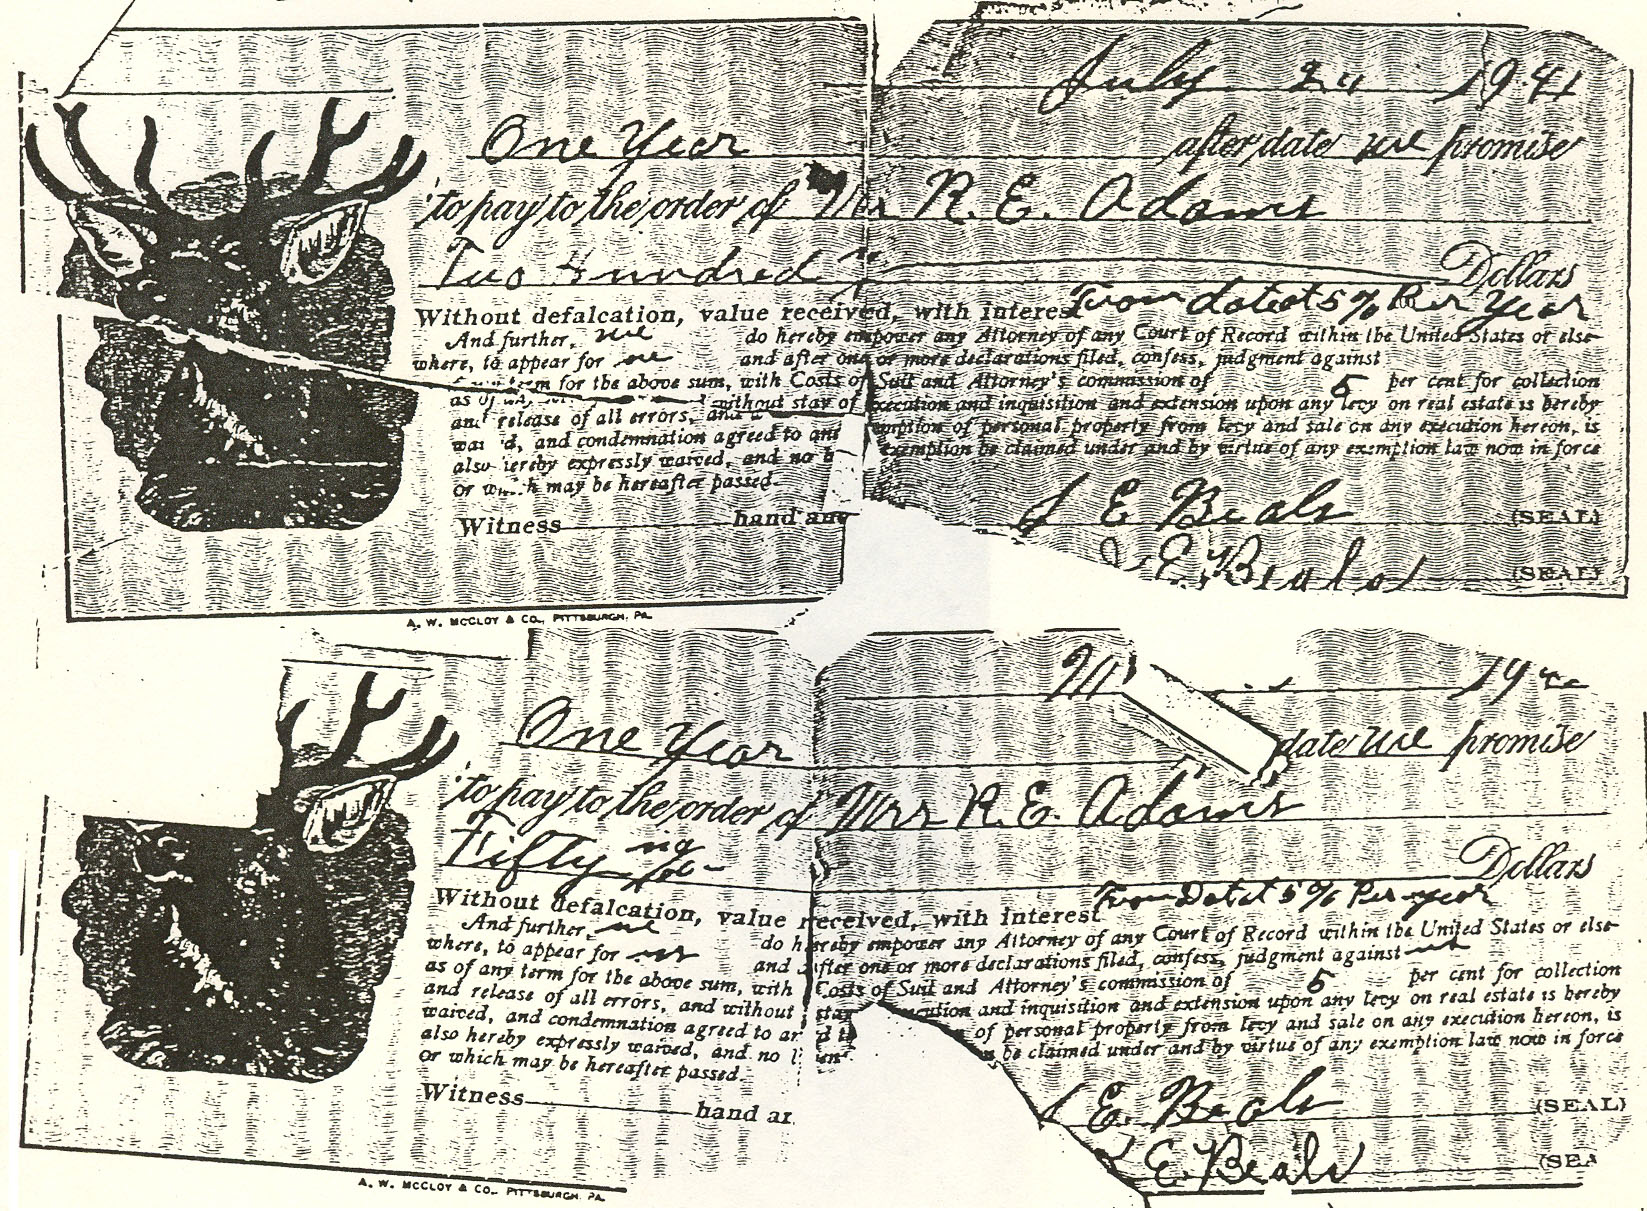 July 2" 1941
One Year after date we promise
to pay to the order of Mrs R. E. Adams
Two Hundred Dollars
Without defalcation, value received, with interest From date at 5% Per Year
And further, we do hereby empower any Attorney of any Court of Record within the United States or else-
where, to appear for us and after one or more declarations filed, confess, judgment against
term for the above sum, with Costs of Suit and Attorney's commission of 5 per cent for collection
and release of all errors, and without stay of execution and inquisition and extension upon any levy on real estate is hereby
and condemnation agreed to and emption of personal property from levy and sale on any execution hereon, is
also hereby expressly waived, and no exemption be claimed under and by virtue of any exemption law now in force
or which may be hereafter passed.
Witness hand and
E Beals (SEAL)
E. Beals (SEAL)
A. W. McCLOY & CO., PITTSBURGH, PA.
M 194
One Year date we promise
to pay to the order of Mrs R. E. Adams
Fifty no/00 Dollars
Without defalcation, value received, with interest From Date at 5% Per year
And further, we do hereby empower any Attorney of any Court of Record within the United States or else-
where, to appear for us and after one or more declarations filed, confess, judgment against us
as of any term for the above sum, with Costs of Suit and Attorney's commission of 5 per cent for collection
and release of all errors, and without stay execution and inquisition and extension upon any levy on real estate is hereby
waived, and condemnation agreed to and of personal property from levy and sale on any execution hereon, is
also hereby expressly waived, and no be claimed under and by virtue of any exemption law now in force
or which may be hereafter passed.
Witness hand an
E. Beals (SEAL)
E Beals (SEA
A. W. McCLOY & CO., PITTSBURGH, PA.